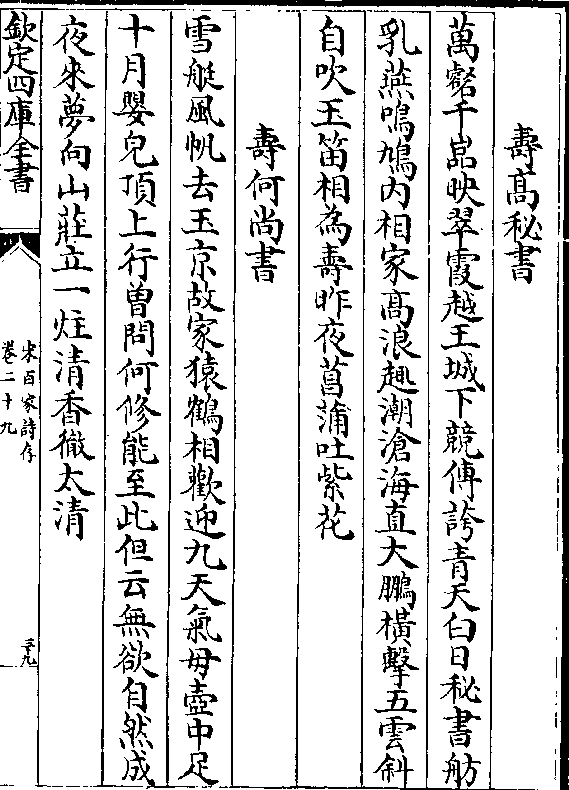 壽髙秘書
萬壑千巖映翠霞越王城下競傳誇青天白日秘書舫
乳燕鳴鳩内相家髙浪趣潮滄海直大鵬横擊五雲斜
自吹玉笛相為壽昨夜菖蒲吐紫花
壽何尚書
雪艇風帆去玉京故家猿鶴相歡迎九天氣母壺中足
十月嬰兒頂上行曽問何修能至此但云無欲自然成
夜來夢向山莊立一炷清香徹太清
欽定四庫全書
宋百家詩存
卷二十九
三十九